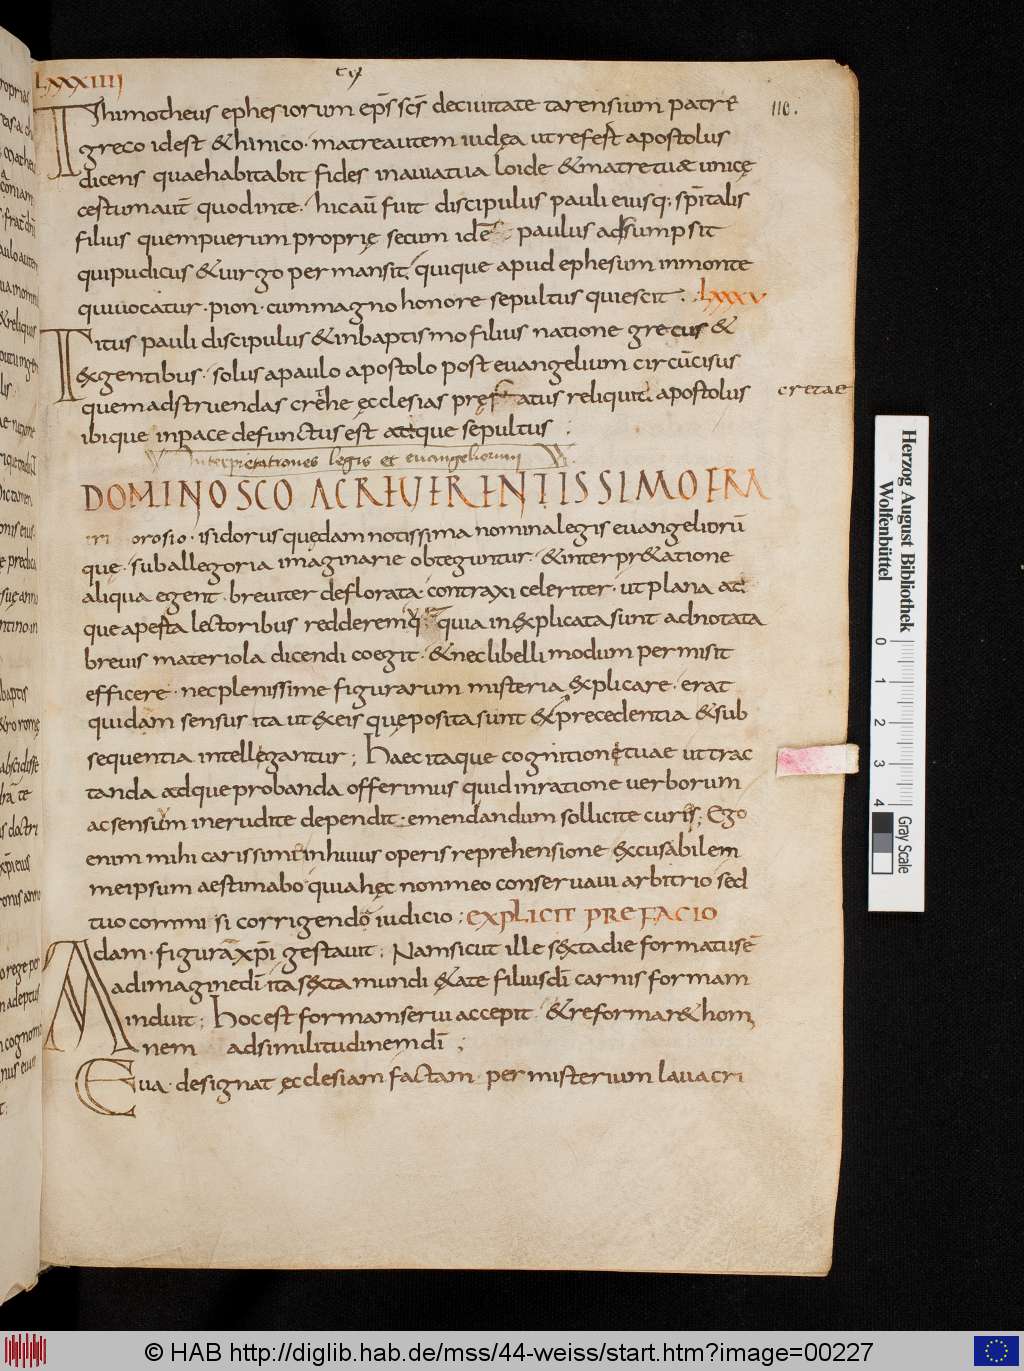 LXXXIIII
cx
110.
Thimotheus ephesiorum ep̄s sc̄s deciuitate tarensium patre
greco idest &hinico · matreautem iudęa utrefert apostolus
dicens quaehabitabit fides inauiatua loide &matretuae unicę
certumaut̄ quodinte · hicaū fuit discipulus pauli eiusq; sp̄italis
filius quempuerum proprię secum paulus adsumpsit
quipudicus &uirgo permansit, quique apud ephesum inmonte
quiuocatur · pion · cummagno honore sepultus quiescit · LXXXV
Titus pauli discipulus &inbaptismo filius natione grecus &
exgentibus · solus apaulo apostolo post euangelium circūcisus
quemadstruendas ecclesias reliquit apostolus
cretae
ibique inpace defunctus est atque sepultus :
Interpretationes legis et euangeliorum
DOMINO SCO AC REUERENTISSIMO FRA
tri orosio · isidorus quędam notissima nominalegis euangeliorū
que · suballegoria imaginarie obteguntur · &interpr&atione
aliqua egent · breuiter deflorata · contraxi celeriter · ut plana at
que aperta lectoribus redderem quia inexplicata sunt adnotata
breuis materiola dicendi coegit · &neclibelli modum permisit
efficere · necplenissime figurarum misteria explicare · erat
quidam sensus ita ut &eis queposita sunt &precedentia &sub
sequentia intellegantur ; Haec itaque cognitione tuae ut trac
tanda adque probanda offerimus quid inratione uerborum
ac sensum inerudite dependit · emendandum sollicite curis ; Ego
enim mihi carissime inhuius operis reprehensione excusabilem
meipsum aestimabo quia hęc nonmeo conseruaui arbitrio sed
tuo commisi corrigendo iudicio : EXPLICIT PREFACIO
Adam · figurā xp̄i gestauit ; Nam sicut ille sexta die formatus ē
adimaginē dī ita sexta mundi &ate filius dī carnis formam
induit ; Hocest formam serui accepit · &reformar& homi
nem ad similitudinem dī ;
Eua · designat ęcclesiam factam · per misterium lauacri
Herzog August Bibliothek
Wolfenbüttel
0 1 2 3 4
Gray Scale
© HAB http://diglib.hab.de/mss/44-weiss/start.htm?image=00227